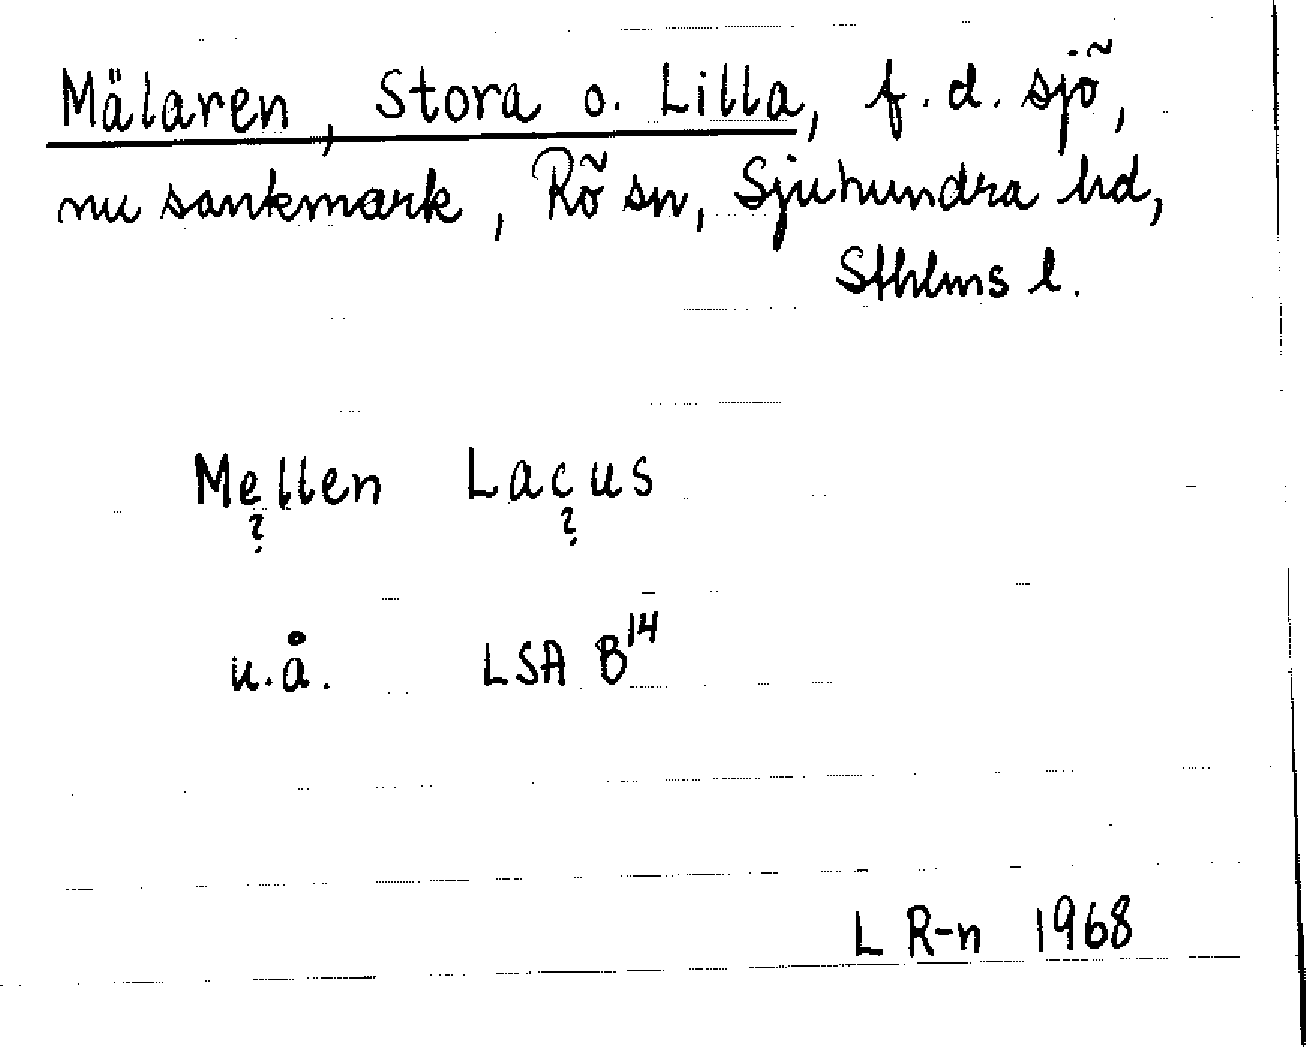 Mälaren, Stora o. Lilla, f. d. sjö,
nu sankmark, Rö sn, Sjuhundra hd,
Sthlms l.
Mellen Lacus
? ?
u.å. LSA B14
L R-n 1968